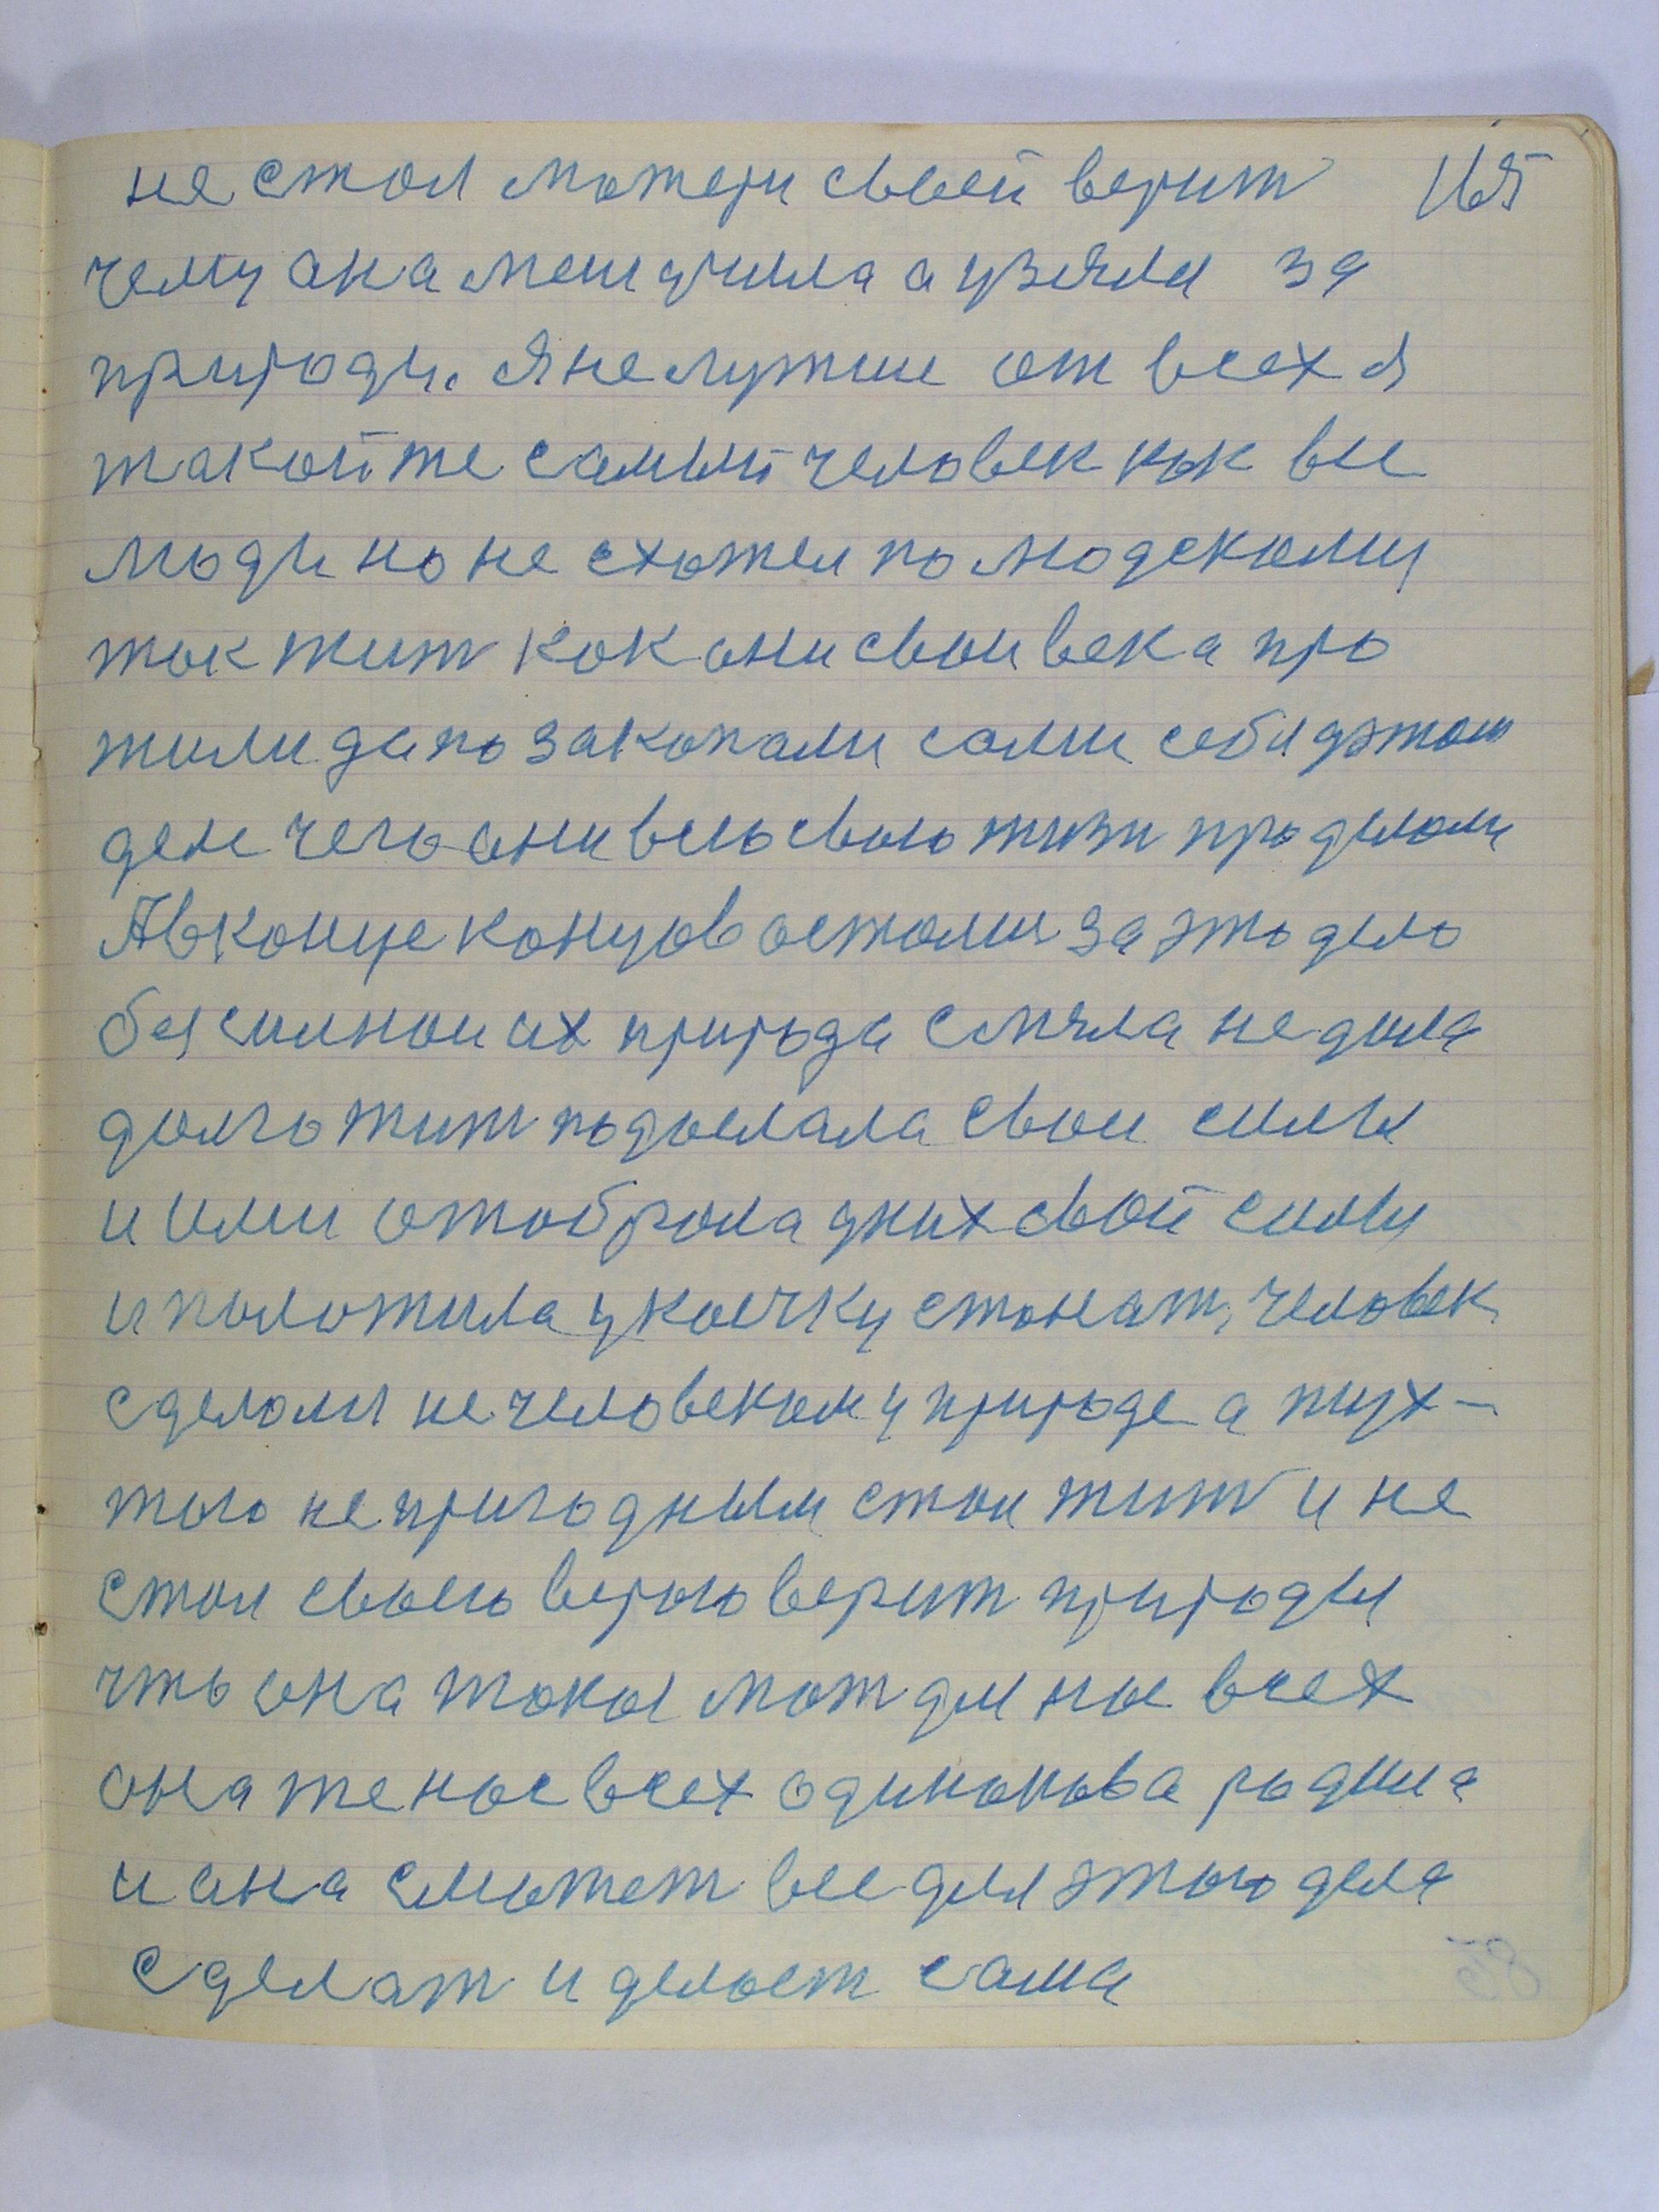 не стал матери своей верит 165
чему она меня учила а узялся за
природу. Я не лутше от всех я
такой же самый человек как все
люди но не схотел по людскому
так жит как они свои века про
жили да позакопали сами себя у этом
деле чего они всю свою жизн проделали
А в конце концов остались за это дело
бессилной их природа смяла не дала
долго жит подослала свои силы
и ими отобрала у них свой силы
и положила у коечку стонат, человек
сделался не человеком у природе а тух-
того непригодным стал жит и не
стал своею верою верит природы
что она такая мат для нас всех
она же нас всех одинакова родила
и она сможет все для этого дела
сделат и делает сама